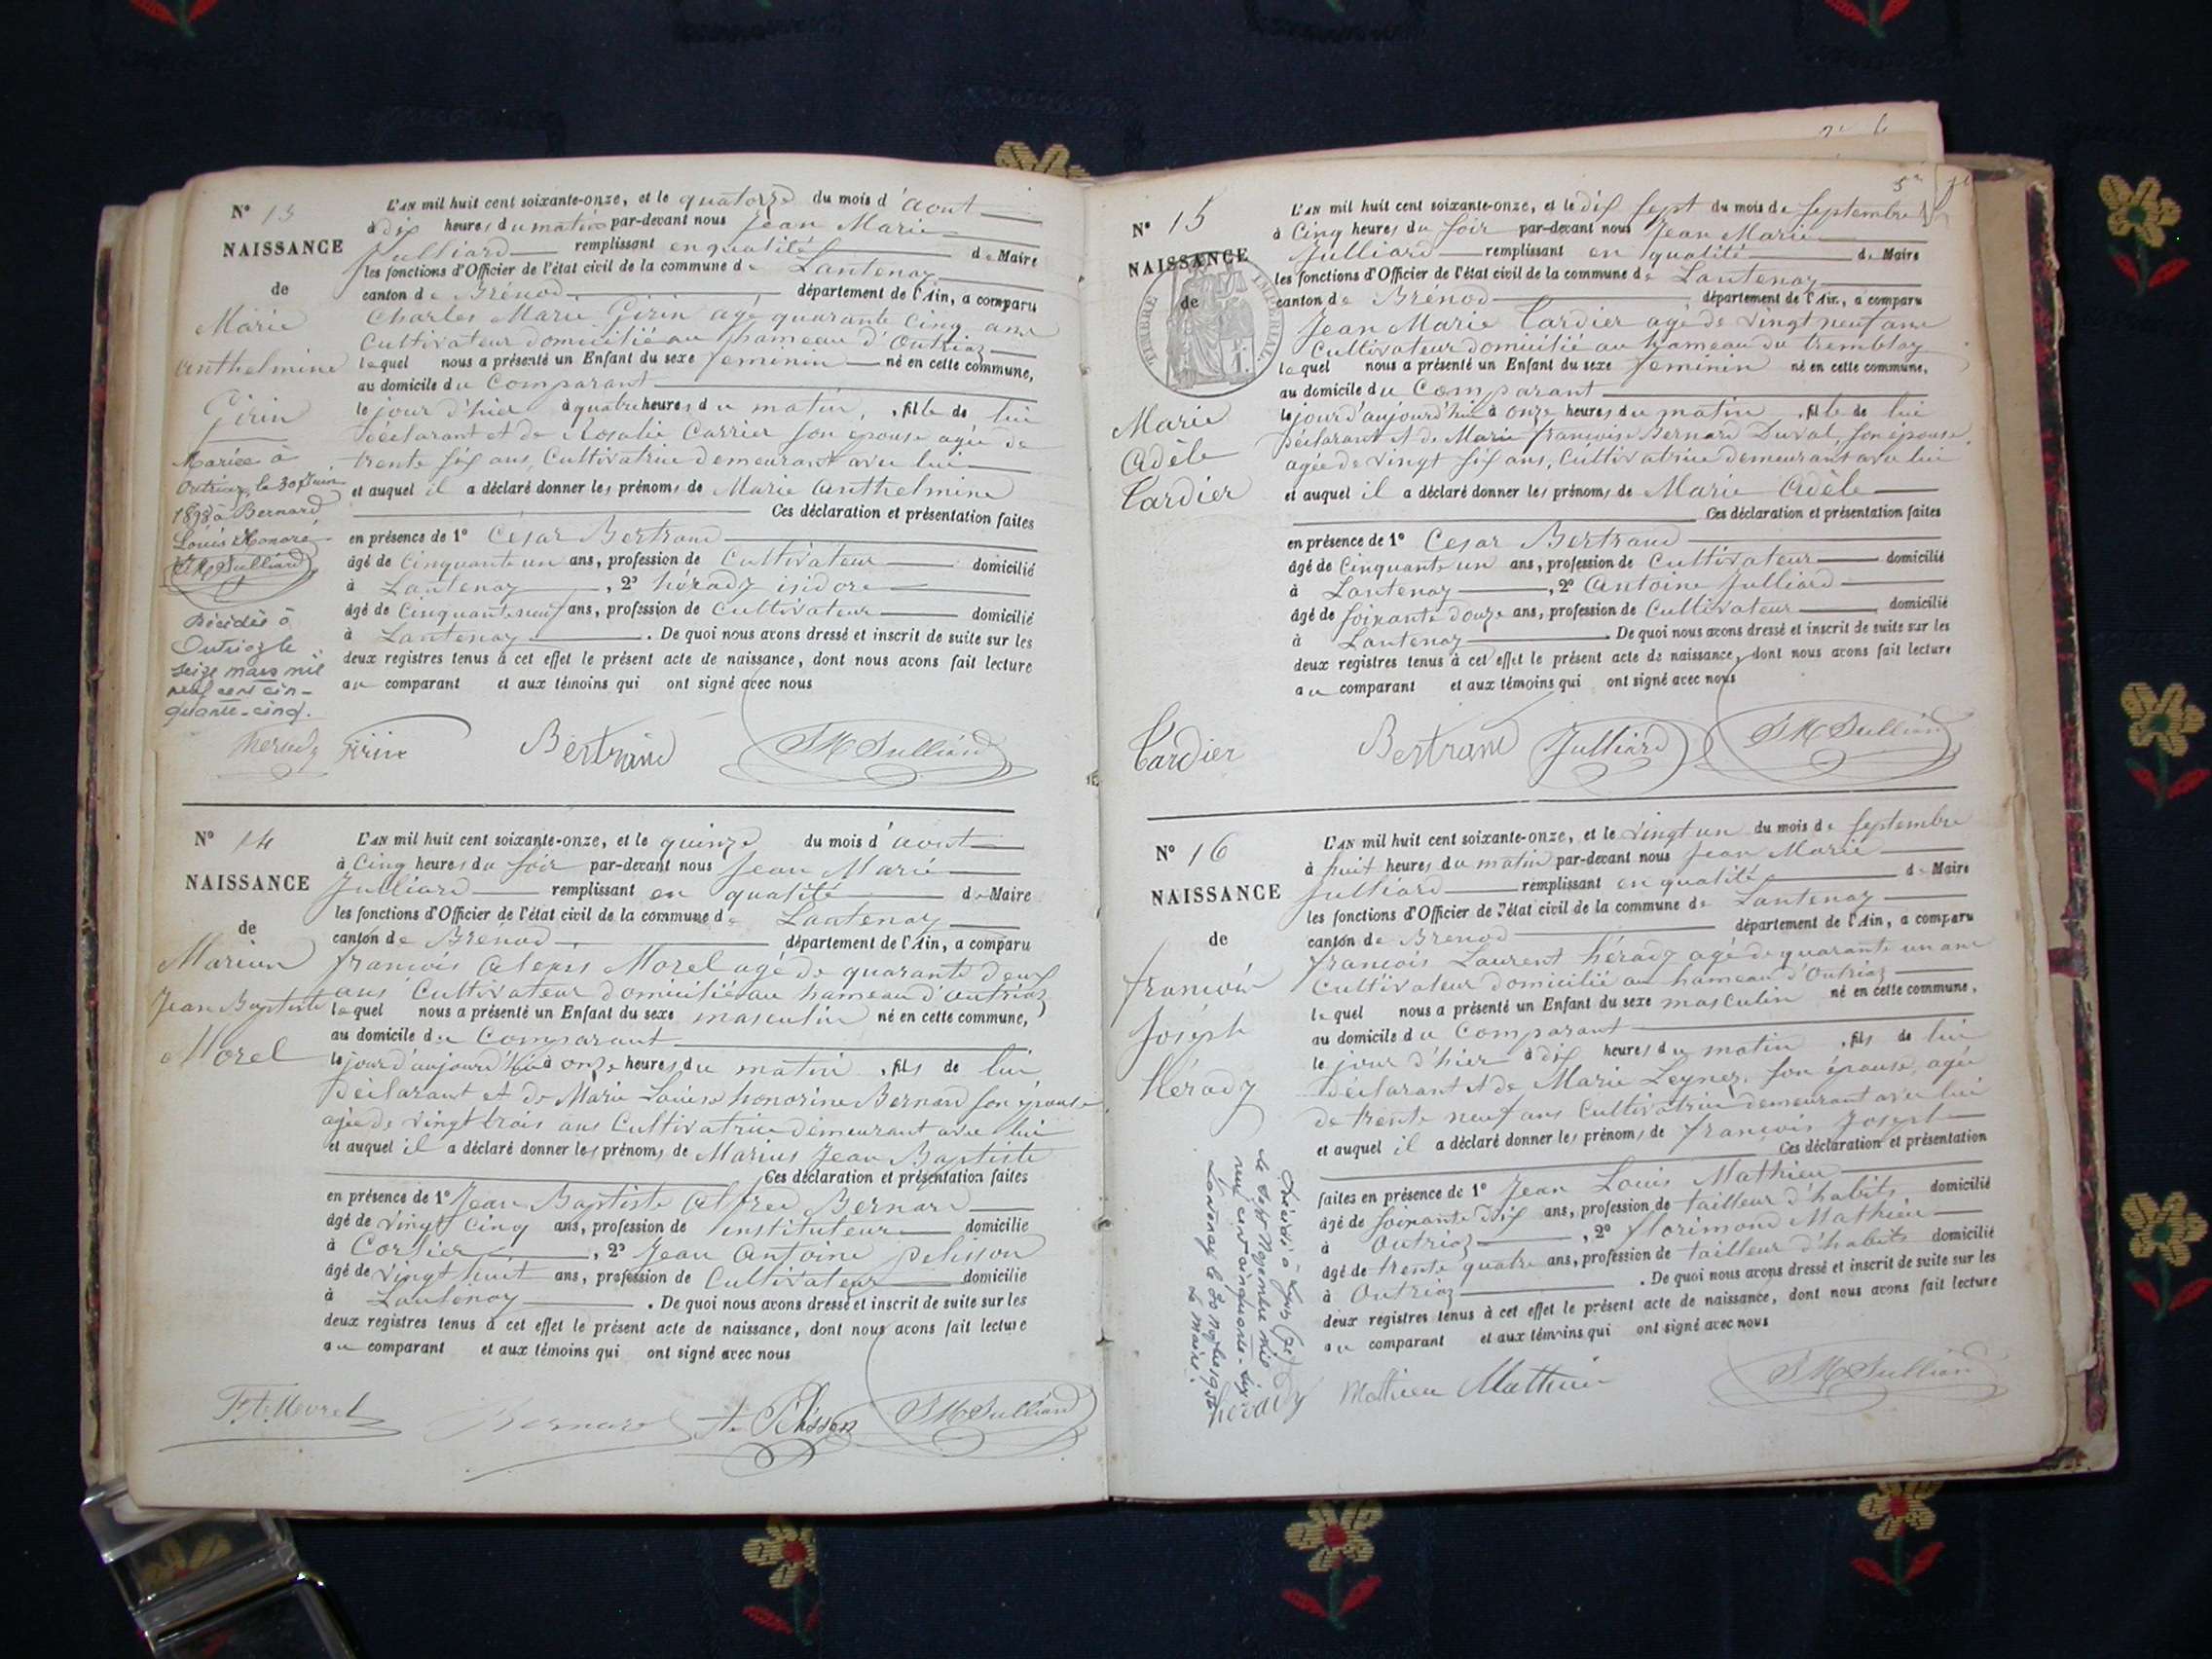 N° 13
NAISSANCE
de
Marie
Anthelmine
Girin
Mariée à
Outriaz, le 30 Juin
1898 à Bernard
Louis Honoré
JM Julliard
Décédée à
Outriaz le
seize mars mil
neuf cent cin-
quante-cinq.
Herady
L'AN mil huit cent soixante-onze, et le quatorze du mois d'aout
à dix heures du matin par-devant nous Jean Marie
Julliard remplissant en qualité de Maire
les fonctions d'Officier de l'état civil de la commune de Lantenay
canton de Brénod département de l'Ain, a comparu
Charles Marie Girin agé quarante cinq ans
Cultivateur domicilié au hameau d'Outriaz
lequel nous a présenté un Enfant du sexe feminin né en cette commune,
au domicile du Comparant
le jour d'hier à quatre heures du matin, fille de lui
déclarant et de Rosalie Carrier son épouse agée de
trente six ans, Cultivatrice demeurant avec lui
et auquel il a déclaré donner les prénoms de Marie Anthelmine
Ces déclaration et présentation faites
en présence de 1° César Bertrand
âgé de Cinquante un ans, profession de Cultivateur domicilié
à Lantenay, 2° hérady isidore
âgé de Cinquante neuf ans, profession de Cultivateur domicilié
à Lantenay. De quoi nous avons dressé et inscrit de suite sur les
deux registres tenus à cet effet le présent acte de naissance, dont nous avons fait lecture
au comparant et aux témoins qui ont signé avec nous
Girin Bertrand JM Julliard
N° 14
NAISSANCE
de
Marius
Jean Baptiste
Morel
L'AN mil huit cent soixante-onze, et le quinze du mois d'aout
à Cinq heures du soir par-devant nous Jean Marie
Julliard remplissant en qualité de Maire
les fonctions d'Officier de l'état civil de la commune de Lantenay
canton de Brénod département de l'Ain, a comparu
françois Alexis Morel agé de quarante deux
ans Cultivateur domicilié au hameau d'Outriaz
lequel nous a présenté un Enfant du sexe masculin né en cette commune,
au domicile du Comparant
le jour d'aujourd'hui à onze heures du matin, fils de lui
déclarant et de Marie Louise honorine Bernard son épouse
agée de vingt trois ans Cultivatrice demeurant avec lui
et auquel il a déclaré donner les prénoms de Marius Jean Baptiste
Ces déclaration et présentation faites
en présence de 1° Jean Baptiste Alfred Bernard
âgé de vingt cinq ans, profession de instituteur domicilié
à Corlier, 2° Jean Antoine Pelisson
âgé de vingt huit ans, profession de Cultivateur domicilié
à Lantenay. De quoi nous avons dressé et inscrit de suite sur les
deux registres tenus à cet effet le présent acte de naissance, dont nous avons fait lecture
au comparant et aux témoins qui ont signé avec nous
Bernard Pelisson JM Julliard
N° 15
NAISSANCE
de
TIMBRE IMPERIAL
Marie
Adèle
Tardier
L'AN mil huit cent soixante-onze, et le dix sept du mois de Septembre
à Cinq heures du soir par-devant nous Jean Marie
Julliard remplissant en qualité de Maire
les fonctions d'Officier de l'état civil de la commune de Lantenay
canton de Brénod département de l'Ain, a comparu
Jean Marie Tardier agé de vingt neuf ans
Cultivateur domicilié au hameau du tremblay
lequel nous a présenté un Enfant du sexe feminin né en cette commune,
au domicile du Comparant
le jour d'aujourd'hui à onze heures du matin, fille de lui
déclarant et de Marie françoise Bernard Duval, son épouse,
agée de vingt six ans, Cultivatrice demeurant avec lui
et auquel il a déclaré donner les prénoms de Marie Adèle
Ces déclaration et présentation faites
en présence de 1° Cesar Bertrand
âgé de Cinquante un ans, profession de Cultivateur domicilié
à Lantenay, 2° Antoine Julliard
âgé de soixante douze ans, profession de Cultivateur domicilié
à Lantenay. De quoi nous avons dressé et inscrit de suite sur les
deux registres tenus à cet effet le présent acte de naissance, dont nous avons fait lecture
au comparant et aux témoins qui ont signé avec nous
Tardier Bertrand Julliard JM Julliard
N° 16
NAISSANCE
de
françois
Joseph
hérady
Décédé à
le sept Novembre mil
neuf cent cinquante-six
Lantenay le 30 1956
Le Maire.
L'AN mil huit cent soixante-onze, et le vingt un du mois de Septembre
à huit heures du matin par-devant nous Jean Marie
Julliard remplissant en qualité de Maire
les fonctions d'Officier de l'état civil de la commune de Lantenay
canton de Brénod département de l'Ain, a comparu
françois Laurent hérady agé de quarante un ans
Cultivateur domicilié au hameau d'Outriaz
lequel nous a présenté un Enfant du sexe masculin né en cette commune,
au domicile du Comparant
le jour d'hier à dix heures du matin, fils de lui
déclarant et de Marie Leynez, son épouse, agée
de trente neuf ans Cultivatrice demeurant avec lui
et auquel il a déclaré donner les prénoms de françois Joseph
Ces déclaration et présentation
faites en présence de 1° Jean Louis Mathieu
âgé de soixante dix ans, profession de tailleur d'habits domicilié
à Outriaz, 2° florimond Mathieu
âgé de trente quatre ans, profession de tailleur d'habits domicilié
à Outriaz. De quoi nous avons dressé et inscrit de suite sur les
deux registres tenus à cet effet le présent acte de naissance, dont nous avons fait lecture
au comparant et aux témoins qui ont signé avec nous
hérady Mathieu Mathieu JM Julliard